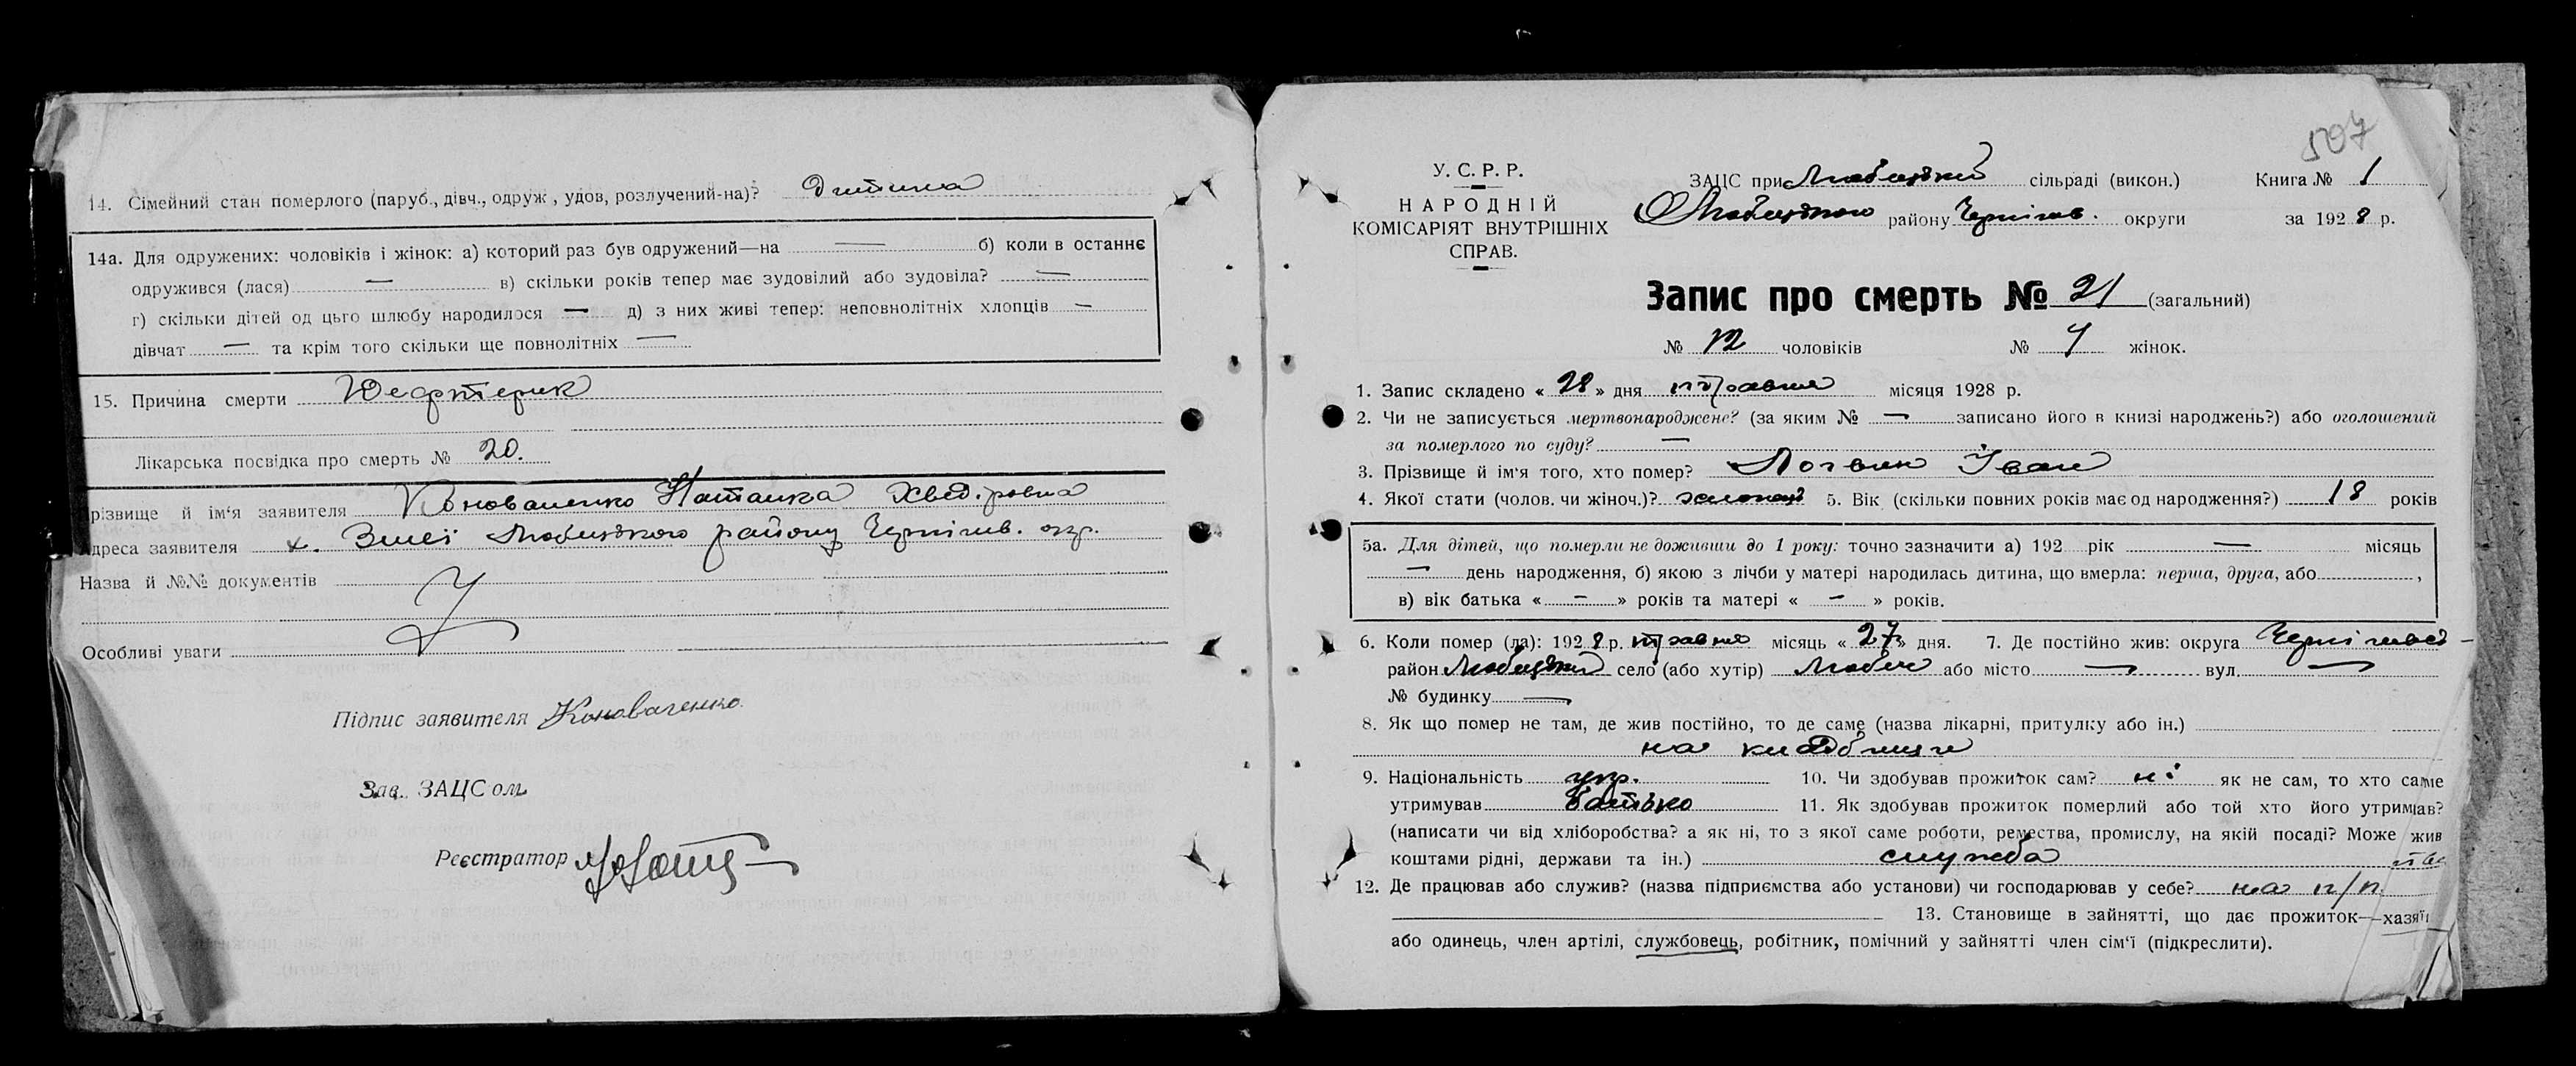 14. Сімейний стан померлого (паруб., дівч., одруж , удов, розлучений-на)? Дитина
14а. Для одружених: чоловіків і жінок: а) который раз був одружений—на — б) коли в останнє
одружився (лася) — в) скільки років тепер має зудовілий або зудовіла? —
г) скільки дітей од цьго шлюбу народилося — д) з них живі тепер: неповнолітніх хлопців —
дівчат — та крім того скільки ще повнолітніх —
15. Причина смерти
Лікарська посвідка про смерть № 20.
різвище й ім'я заявителя Коноваленко Наталка
дреса заявителя х. Змеї Любецького району Чернігів. окр.
Назва й №№ документів
Особливі уваги
Підпис заявителя Коноваленко
Зав. ЗАЦСом
Реєстратор
507
У. С. Р. Р.
НАРОДНІЙ
КОМІСАРІЯТ ВНУТРІШНІХ
СПРАВ.
ЗАЦС при Любецькій сільраді (викон.) Книга № 1
Любецького району Чернігів. округи за 1928 р.
Запис про смерть № 21 (загальний)
№ 12 чоловіків № 9 жінок.
1. Запис складено « 28 » дня травня місяця 1928 р.
2. Чи не записується мертвонароджене? (за яким № — записано його в книзі народжень?) або оголошений
за померлого по суду? —
3. Прізвище й ім'я того, хто помер? Логвин Іван
4. Якої стати (чолов. чи жіноч.)? 5. Вік (скільки повних років має од народження?) 18 років
5а. Для дітей, що померли не доживши до 1 року: точно зазначити а) 192 рік — місяць
— день народження, б) якою з лічби у матері народилась дитина, що вмерла: перша, друга, або ,
в) вік батька « — » років та матері « — » років.
6. Коли помер (ла): 1928 р. травня місяць « 27 » дня. 7. Де постійно жив: округа
район Любецький село (або хутір) Любеч або місто — вул. —
№ будинку —
8. Як що помер не там, де жив постійно, то де саме (назва лікарні, притулку або ін.)
на кладбищи
9. Національність укр. 10. Чи здобував прожиток сам? ні як не сам, то хто саме
утримував батько 11. Як здобував прожиток померлий або той хто його утримав?
(написати чи від хліборобства? а як ні, то з якої саме роботи, ремества, промислу, на якій посаді? Може жив
коштами рідні, держави та ін.) служба
12. Де працював або служив? (назва підприємства або установи) чи господарював у себе? на п/п.
13. Становище в зайнятті, що дає прожиток—хазяїн
або одинець, член артілі, службовець, робітник, помічний у зайнятті член сім'ї (підкреслити).